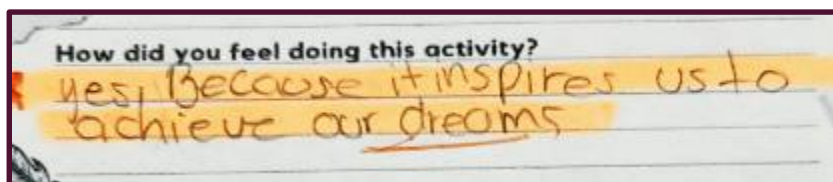 How did you feel doing this activity?
yes, Because it inspires us to
achieve our dreams